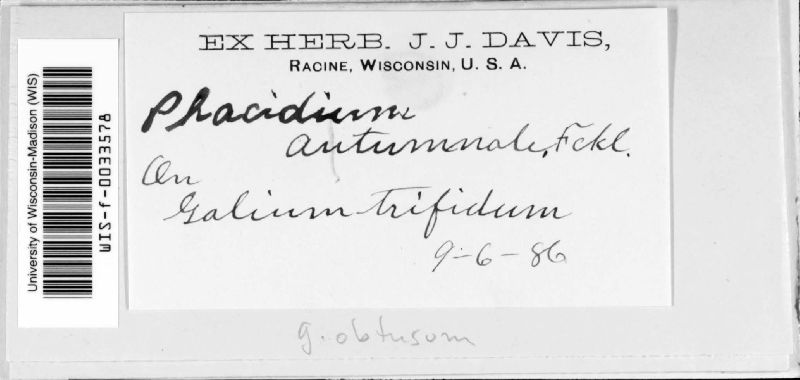 EX HERB. J. J. DAVIS,
RACINE, WISCONSIN, U. S. A.
Phacidium
autumnale, Fckl.
On
Galium trifidum
9-6-86
g. obtusum
University of Wisconsin-Madison (WIS)
WIS-f-0033578